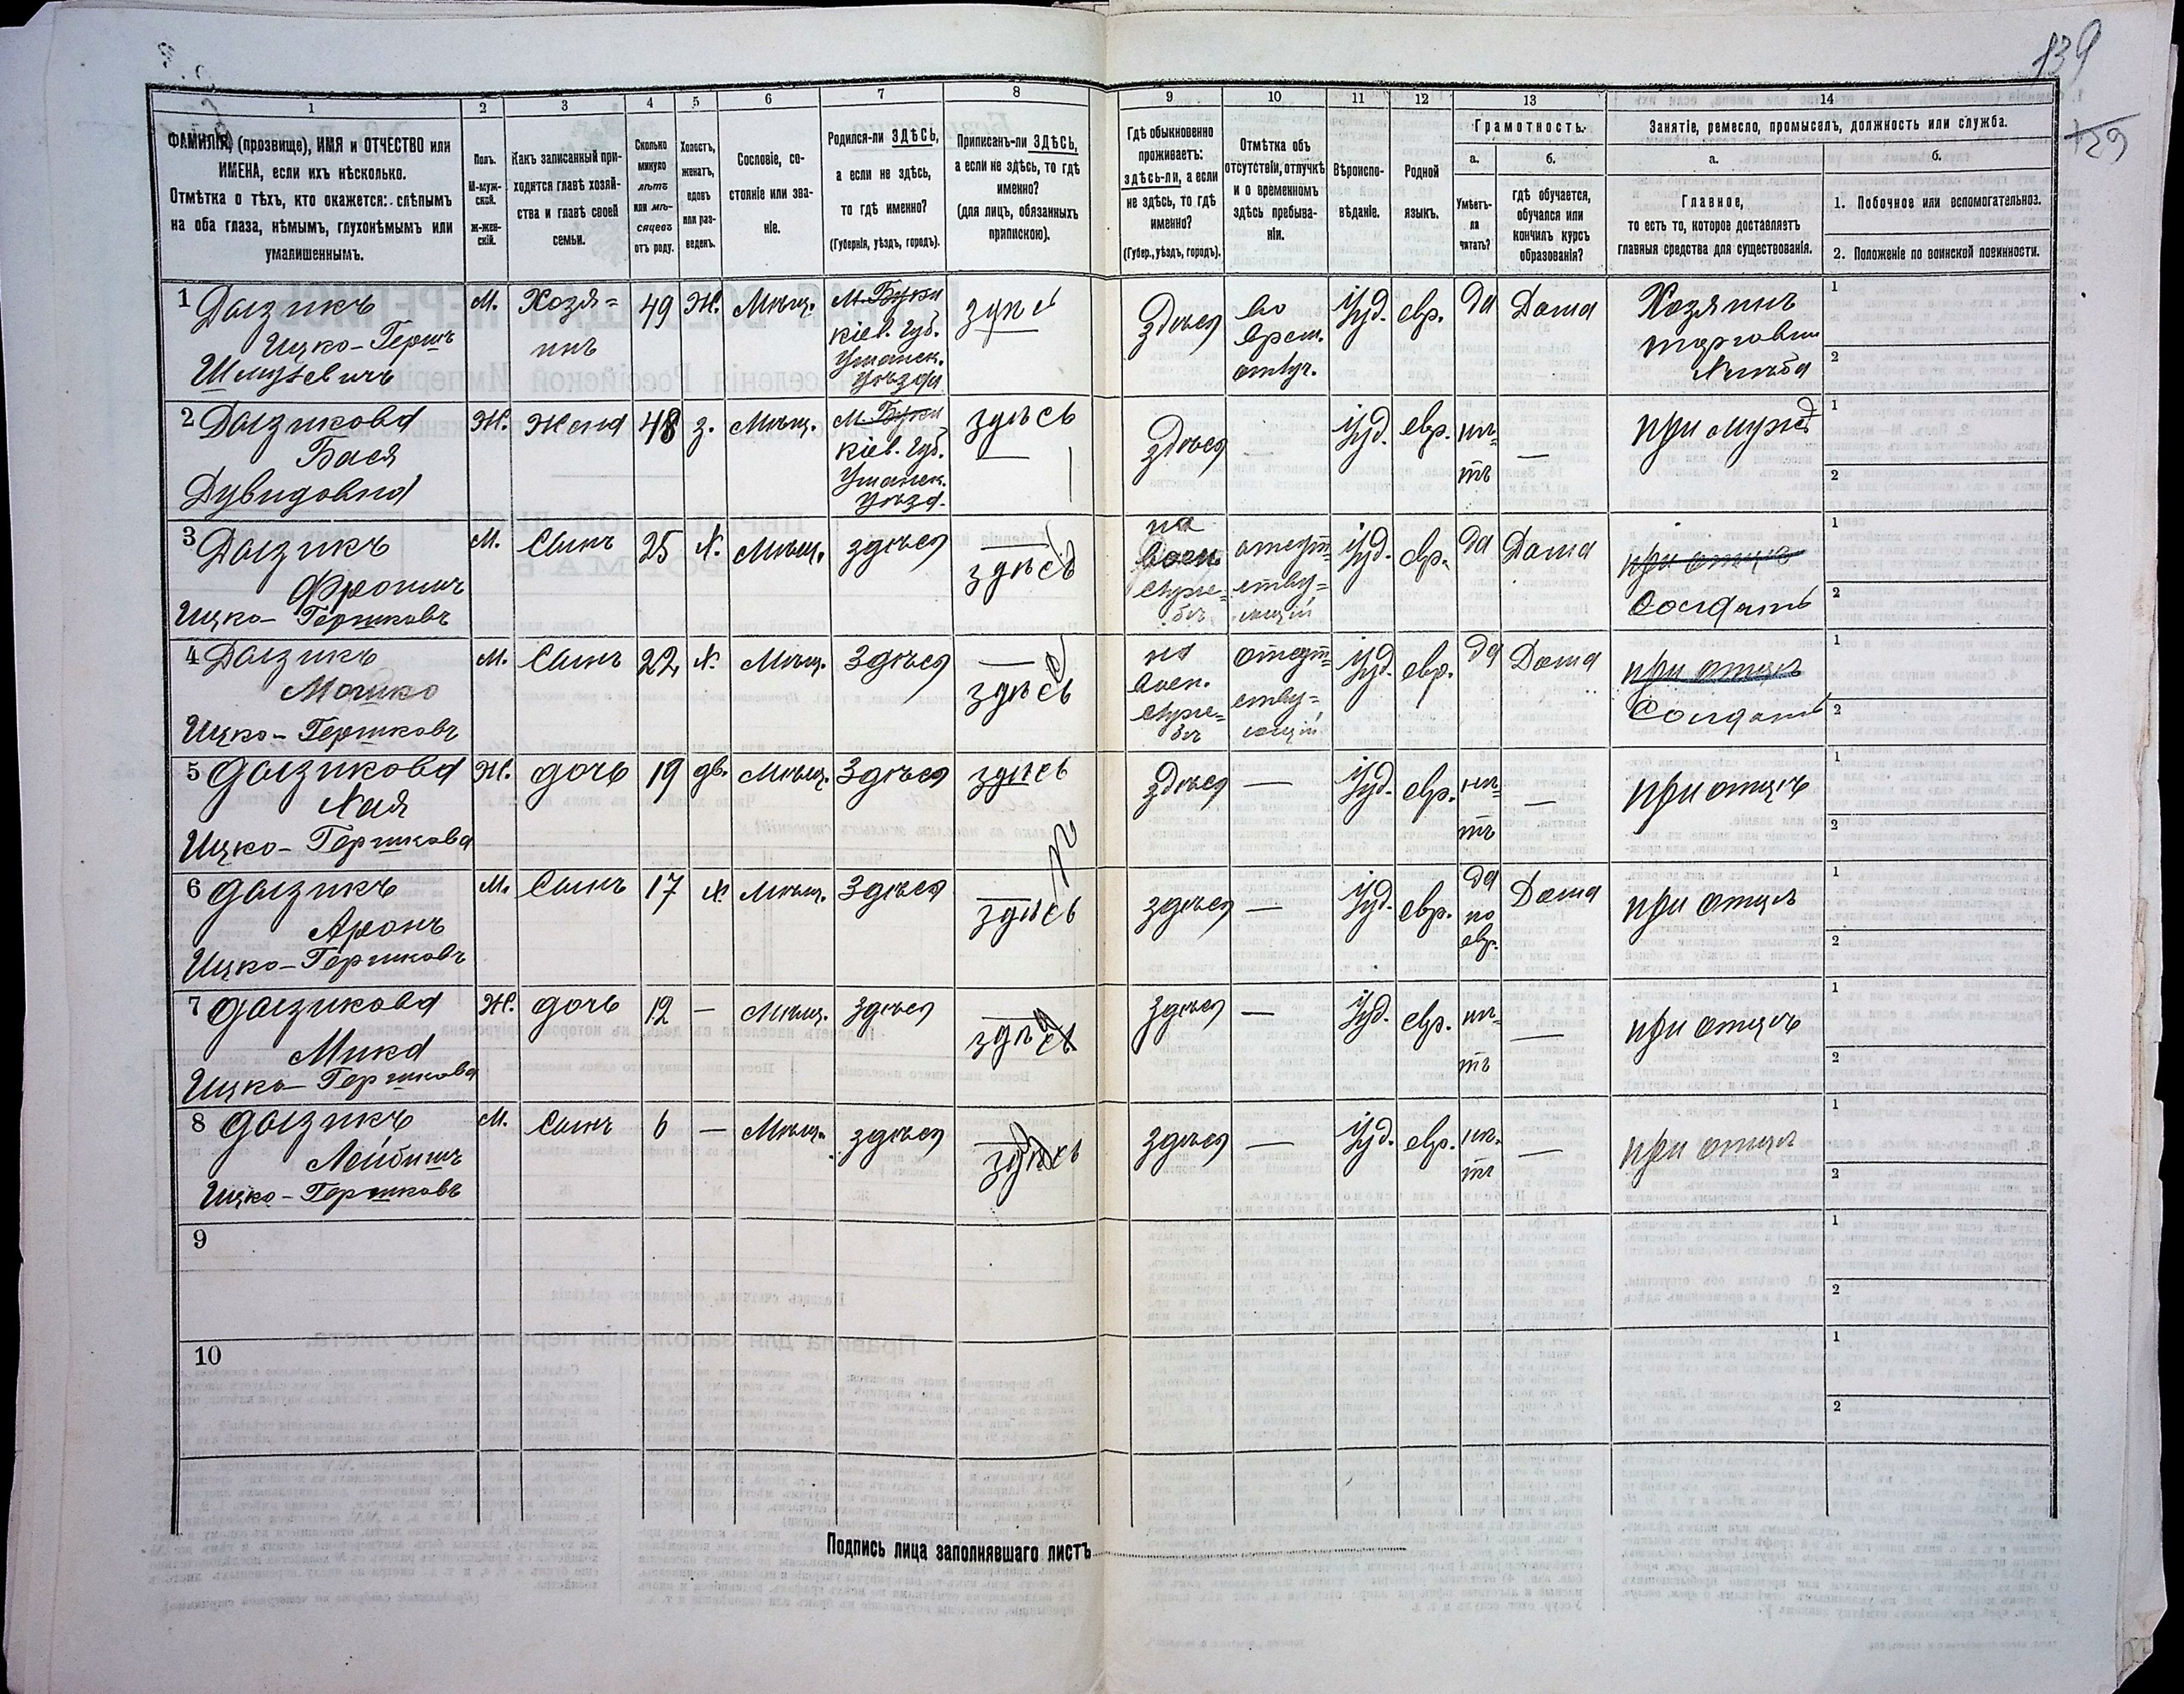 139
129
1
2
3
4
5
6
7
8
9
10
11
12
13
14
ФАМИЛІЯ, (прозвище), ИМЯ и ОТЧЕСТВО или
ИМЕНА, если ихъ нѣсколько.
Отмѣтка о тѣхъ, кто окажется: слѣпымъ
на оба глаза, нѣмымъ, глухонѣмымъ или
умалишеннымъ.
Полъ.
М-муж-
ской.
Ж-жен-
скій.
Какъ записанный при-
ходится главѣ хозяй-
ства и главѣ своей
семьи.
Сколько
минуло
лѣтъ
или мѣ-
сяцевъ
отъ роду.
Холостъ,
женатъ,
вдовъ
или раз-
веденъ.
Сословіе, со-
стояніе или зва-
ніе.
Родился-ли ЗДѢСЬ,
а если не здѣсь,
то гдѣ именно?
(Губернія, уѣздъ, городъ).
Приписанъ-ли ЗДѢСЬ,
а если не здѣсь, то гдѣ
именно?
(для лицъ, обязанныхъ
припискою).
Гдѣ обыкновенно
проживаетъ:
здѣсь-ли, а если
не здѣсь, то гдѣ
именно?
(Губер., уѣздъ, городъ).
Отмѣтка объ
отсутствіи, отлучкѣ
и о временномъ
здѣсь пребыва-
ніи.
Вѣроиспо-
вѣданіе.
Родной
языкъ.
Грамотность.
а.
Умѣетъ-
ли
читать?
б.
гдѣ обучается,
обучался или
кончилъ курсъ
образованія?
Занятіе, ремесло, промыселъ, должность или служба.
а.
Главное,
то есть то, которое доставляетъ
главныя средства для существованія.
б.
1. Побочное или вспомогательное.
2. Положеніе по воинской повинности.
1 Дызикъ
Ицко-Гершъ
Шмулевичъ
М.
Хозя=
инъ
49
Ж.
Мѣщ.
М. Буки
Кіев. губ.
Уманск.
уѣзда
Здѣсь
во
врем.
отлуч.
Іуд.
евр.
да
Дома
Хозяинъ
торговли
1
2
2 Дызикова
Бася
Дувидовна
Ж.
Жена
48
з.
Мѣщ.
М. Буки
Кіев. губ.
Уманск.
уѣзд.
здѣсь
Здѣсь
—
Іуд.
евр.
нѣ-
тъ
—
при мужѣ
1
2
3 Дызикъ
Фроимъ
Ицко-Гершковъ
М.
Сынъ
25
х.
Мѣщ.
здѣсь
—
здѣсь
на
воен.
служ=
бѣ
отсут=
ству=
ющій
Іуд.
евр.
да
Дома
при отцѣ
Солдатъ
1
2
4 Дызикъ
Мошко
Ицко-Гершковъ
М.
Сынъ
22
х.
Мѣщ.
Здѣсь
—
здѣсь
на
воен.
служ=
бѣ
отсут=
ству=
ющій
Іуд.
евр.
да
Дома
при отцѣ
Солдатъ
1
2
5 Дызикова
Хая
Ицко-Гершкова
Ж.
дочь
19
дв.
Мѣщ.
Здѣсь
здѣсь
Здѣсь
—
Іуд.
евр.
нѣ-
тъ
—
при отцѣ
1
2
6 Дызикъ
Аронъ
Ицко-Гершковъ
М.
Сынъ
17
х.
Мѣщ.
Здѣсь
—
здѣсь
здѣсь
—
Іуд.
евр.
да
по
евр.
Дома
при отцѣ
1
2
7 Дызикова
Ицко-Гершкова
Ж.
дочь
12
—
Мѣщ.
здѣсь
—
здѣсь
здѣсь
—
Іуд.
евр.
нѣ-
тъ
—
при отцѣ
1
2
8 Дызикъ
Лейбишъ
Ицко-Гершковъ
М.
Сынъ
6
—
Мѣщ.
здѣсь
—
здѣсь
здѣсь
—
Іуд.
евр.
нѣ-
тъ
—
при отцѣ
1
2
9
1
2
10
1
2
Подпись лица заполнявшаго листъ